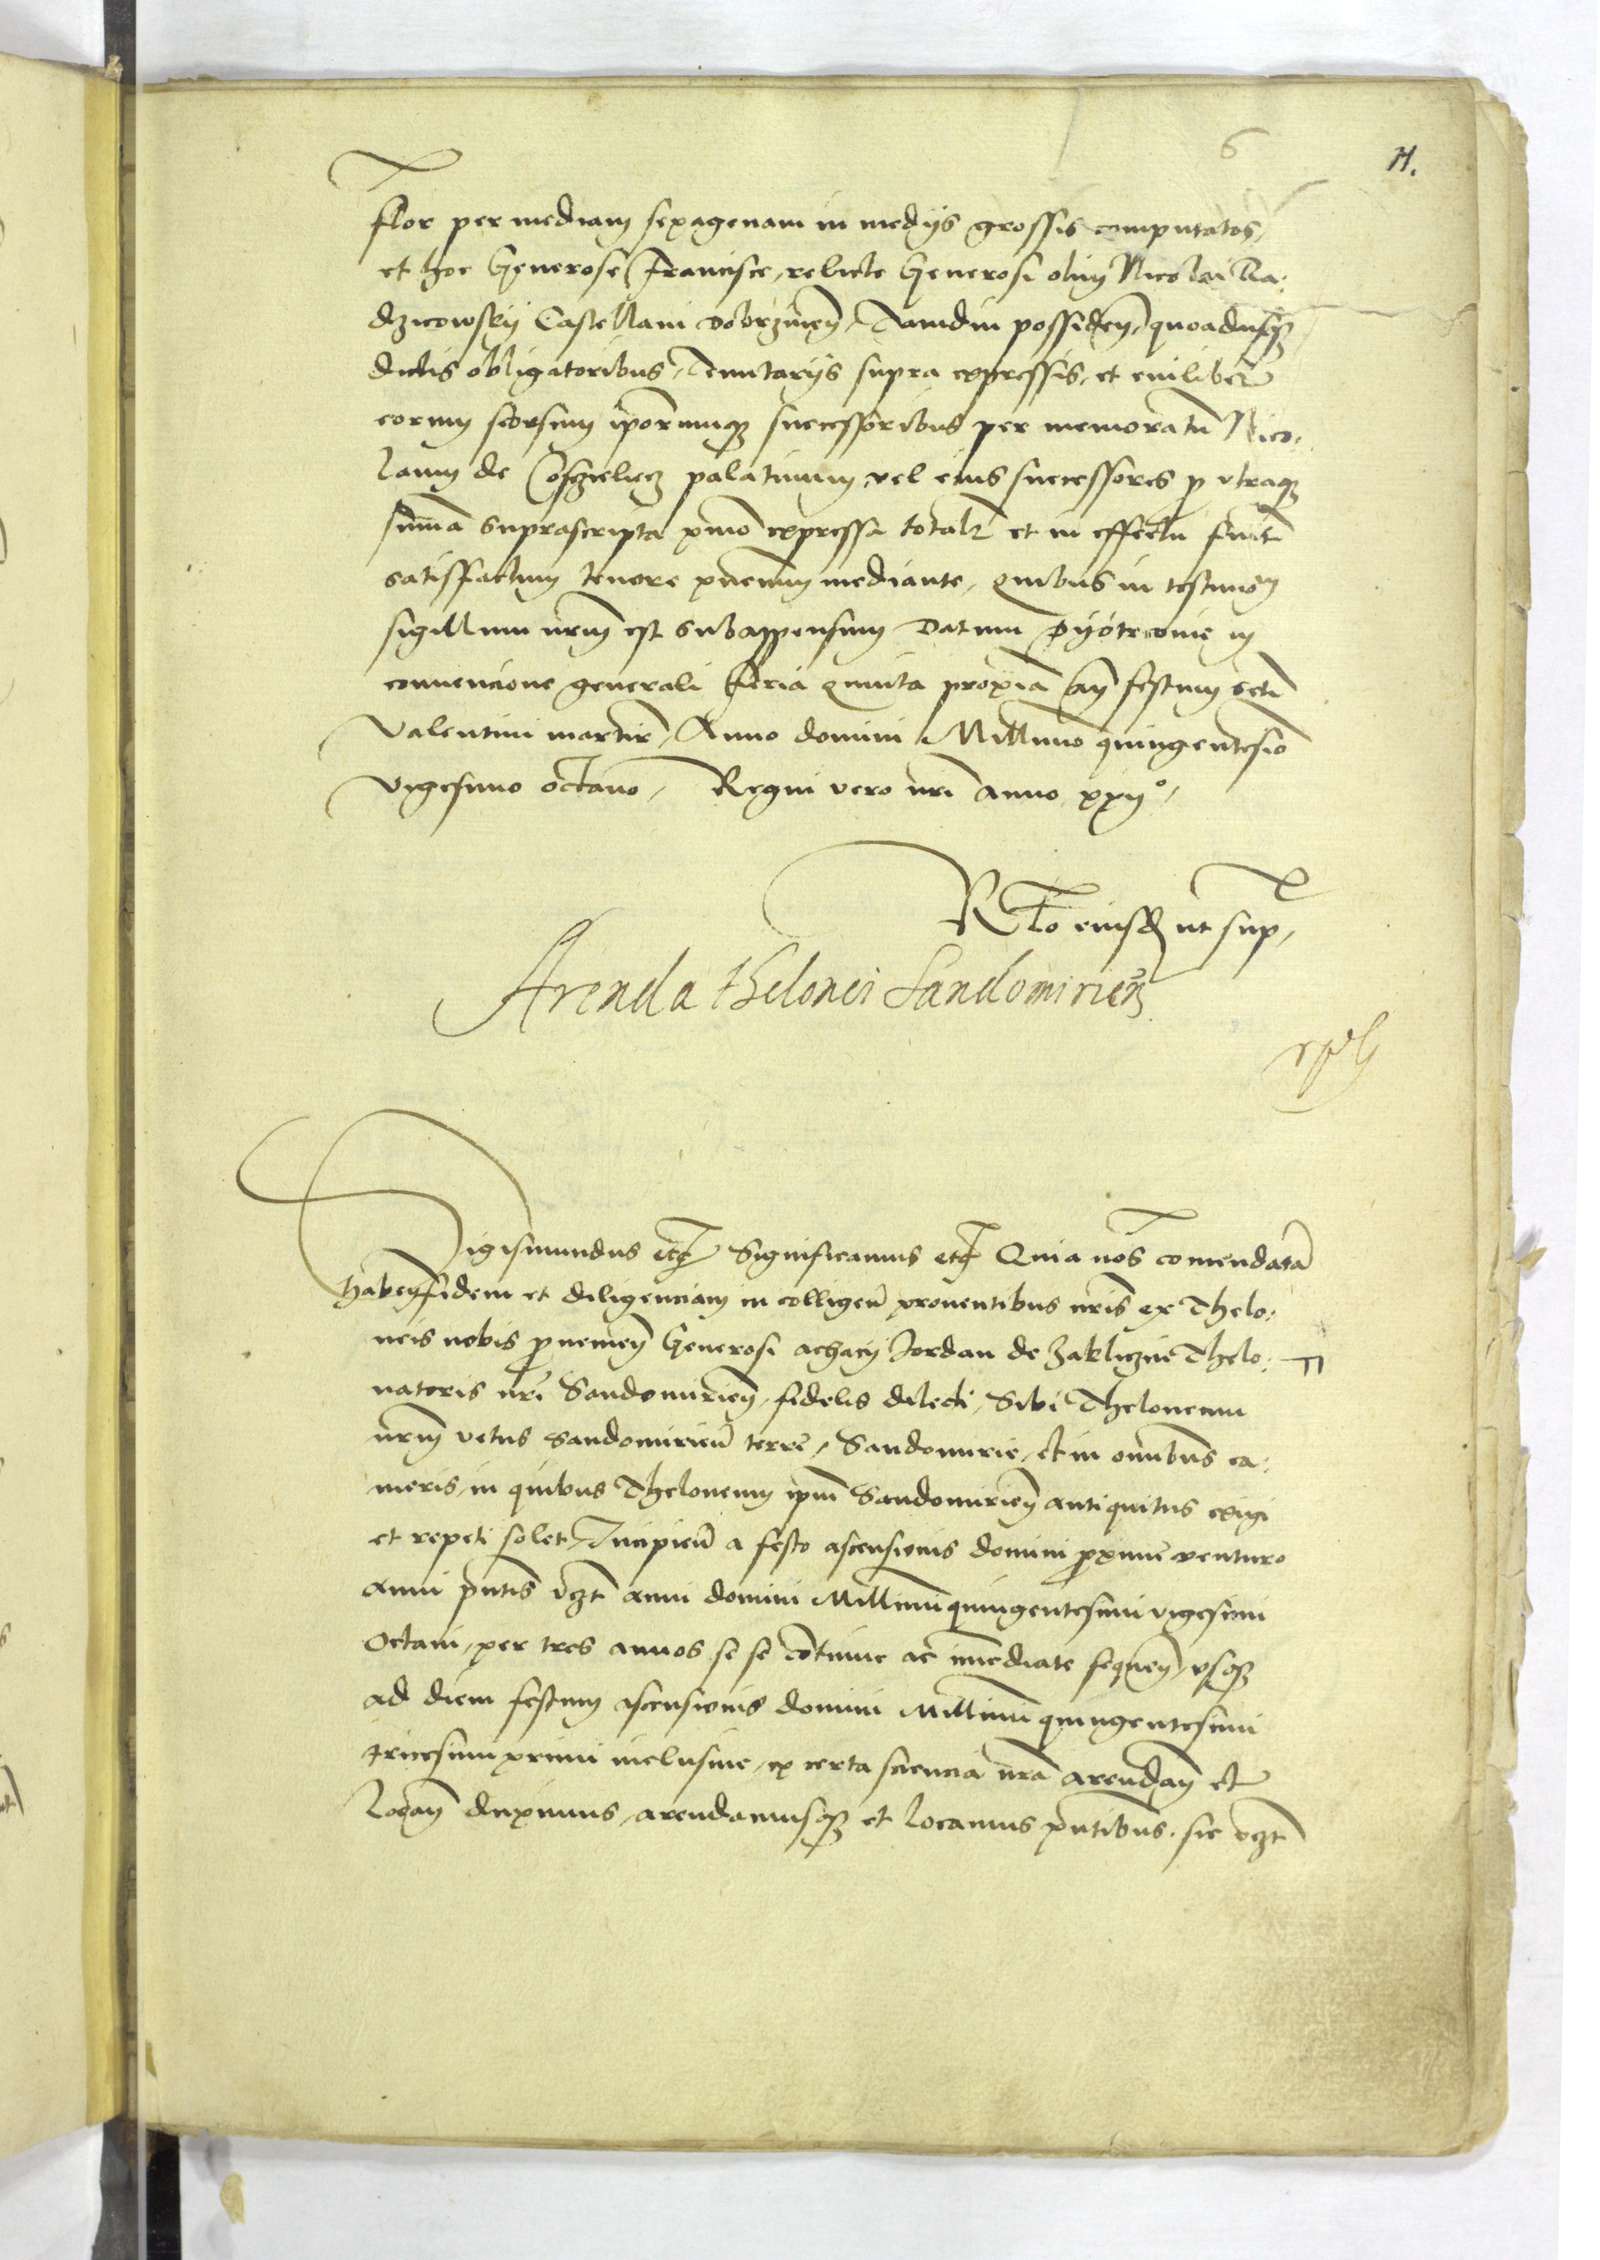 6
11.
flor per mediam sexagenam in medÿs grossis computatos,
et hoc Generose Francisce, relicte Generosi olim Nicolai Ra:
dzieowskÿ Castellani dobrzineñ, Tamdiu possideñ, quoadusqꝫ
dictis obligatoribus, Tenutarÿs supra expressis, et cuilibet
eorum seorsim ip̄orumqꝫ successoribus per memoratū Nico:
laum de Cosczielecz palatinum vel eius successores p̱ utraqꝫ
sum̄a suprascripta p̄mō expressa totalr̄ et in effectu fuit
satisfactum tenore p̄ncium mediante, quibus in testimoñ
sigillum nr̄m est subappensum Datum Pÿotrcouie in
conuencione generali feria quinta proxiā añ festum scti
Valentini martir̄, Anno domini Millimo quingentesīo
vigesimo octauo, Regni vero nr̄i anno xxij°,
R̄to eiusd̄ ut sup̱,
Arenda thelonei Sandomirieñ
Sigismundus etc̄ Significamus etc̄ Quia nos comendatā
habeñ fidem et diligenciam in colligeñ prouentibus nr̄is ex Thelo:
neis nobis p̱uenieñ Generosi achacÿ Jordan de Zakliczin Thelo:
natoris nr̄i Sandomirieñ, fidelis dilecti, Sibi Theloneum
nr̄m vetus Sandomirieñ terre, Sandomirie, et in omnibus ca:
meris, in quibus Theloneum ip̄m Sandomirieñ antiquitus exigi
et repeti solet, Incipieñ a festo ascensionis domini p̱xime venturo
anni p̄ntis vꝫt anni domini Millimi quingentesimi vigesimi
Octaui, per tres annos se se cōtinue ac im̄ediate sequeñ, vsqꝫ
ad diem festum ascensionis domini Millimi quingentesimi
tricesimi primi inclusiue, ex certa sciencia nr̄a arendañ et
Locañ duximus, arendamusqꝫ et locamus p̄ntibus. sic vꝫt